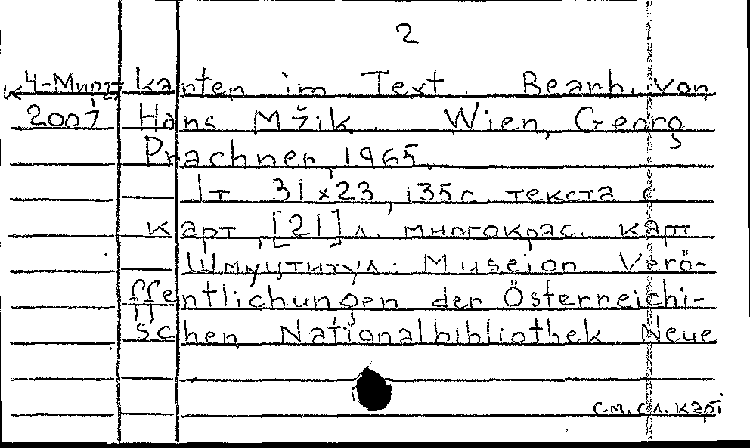 2
4-Мирт karten im Text. Bearb. von
2007 Hans Mžik. Wien, Georg
Prachner, 1965.
1т 31x23, 135с. текста с
карт, [21] л. многокрас. карт
Шмуцтитул: Museion Verö-
ffentlichungen der Österreichi-
schen Nationalbibliothek Neue
см. сл. карт